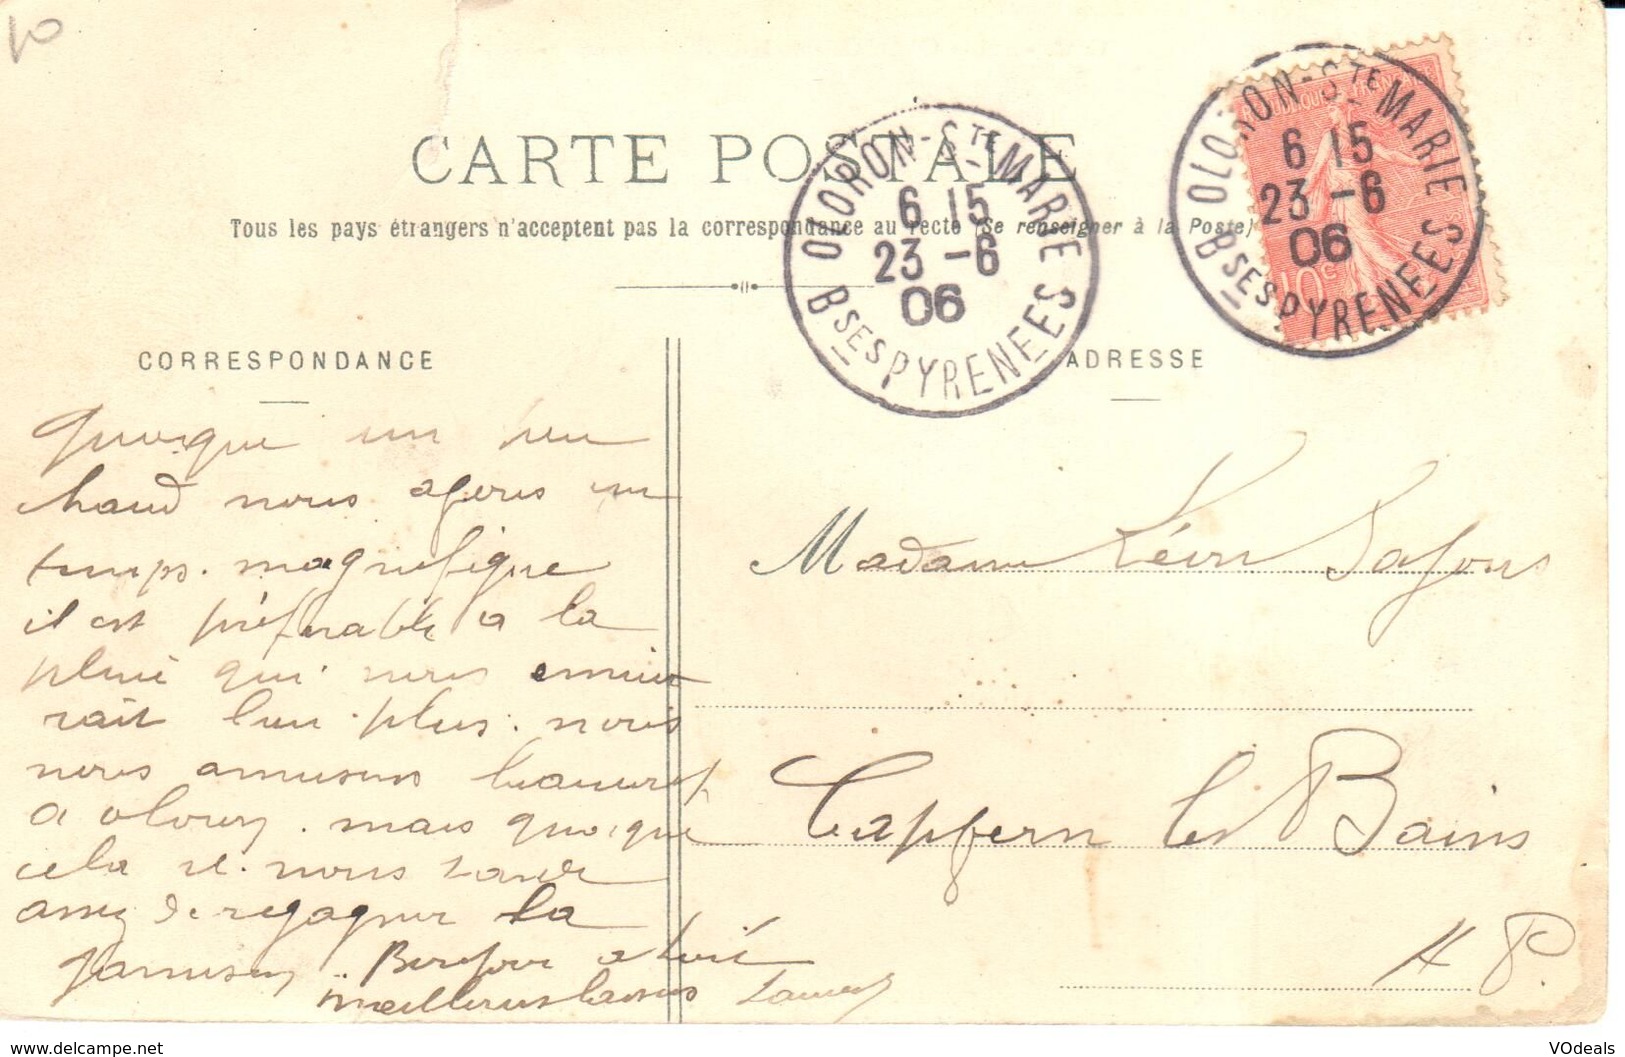 10
CARTE POSTALE
Tous les pays étrangers n'acceptent pas la correspondance au recto (Se renseigner à la Poste)
OLORON-STE MARIE
6 15
23 -6
06
BSES PYRENEES
OLORON-STE MARIE
6 15
23 -6
06
BSES PYRENEES
10c
CORRESPONDANCE
Quoique un peu
chaud nous avons un
temps. magnifique
il est préférable a la
pluie qui nous ennuie
rait bien plus. nous
nous amusons
a oloron. mais quoique
cela il nous tarde
assez de regagner la
garnison. Bonjour a tous
meilleurs baisers
ADRESSE
Madame Léon
Capvern les Bains
H P.
www.delcampe.net
VOdeals